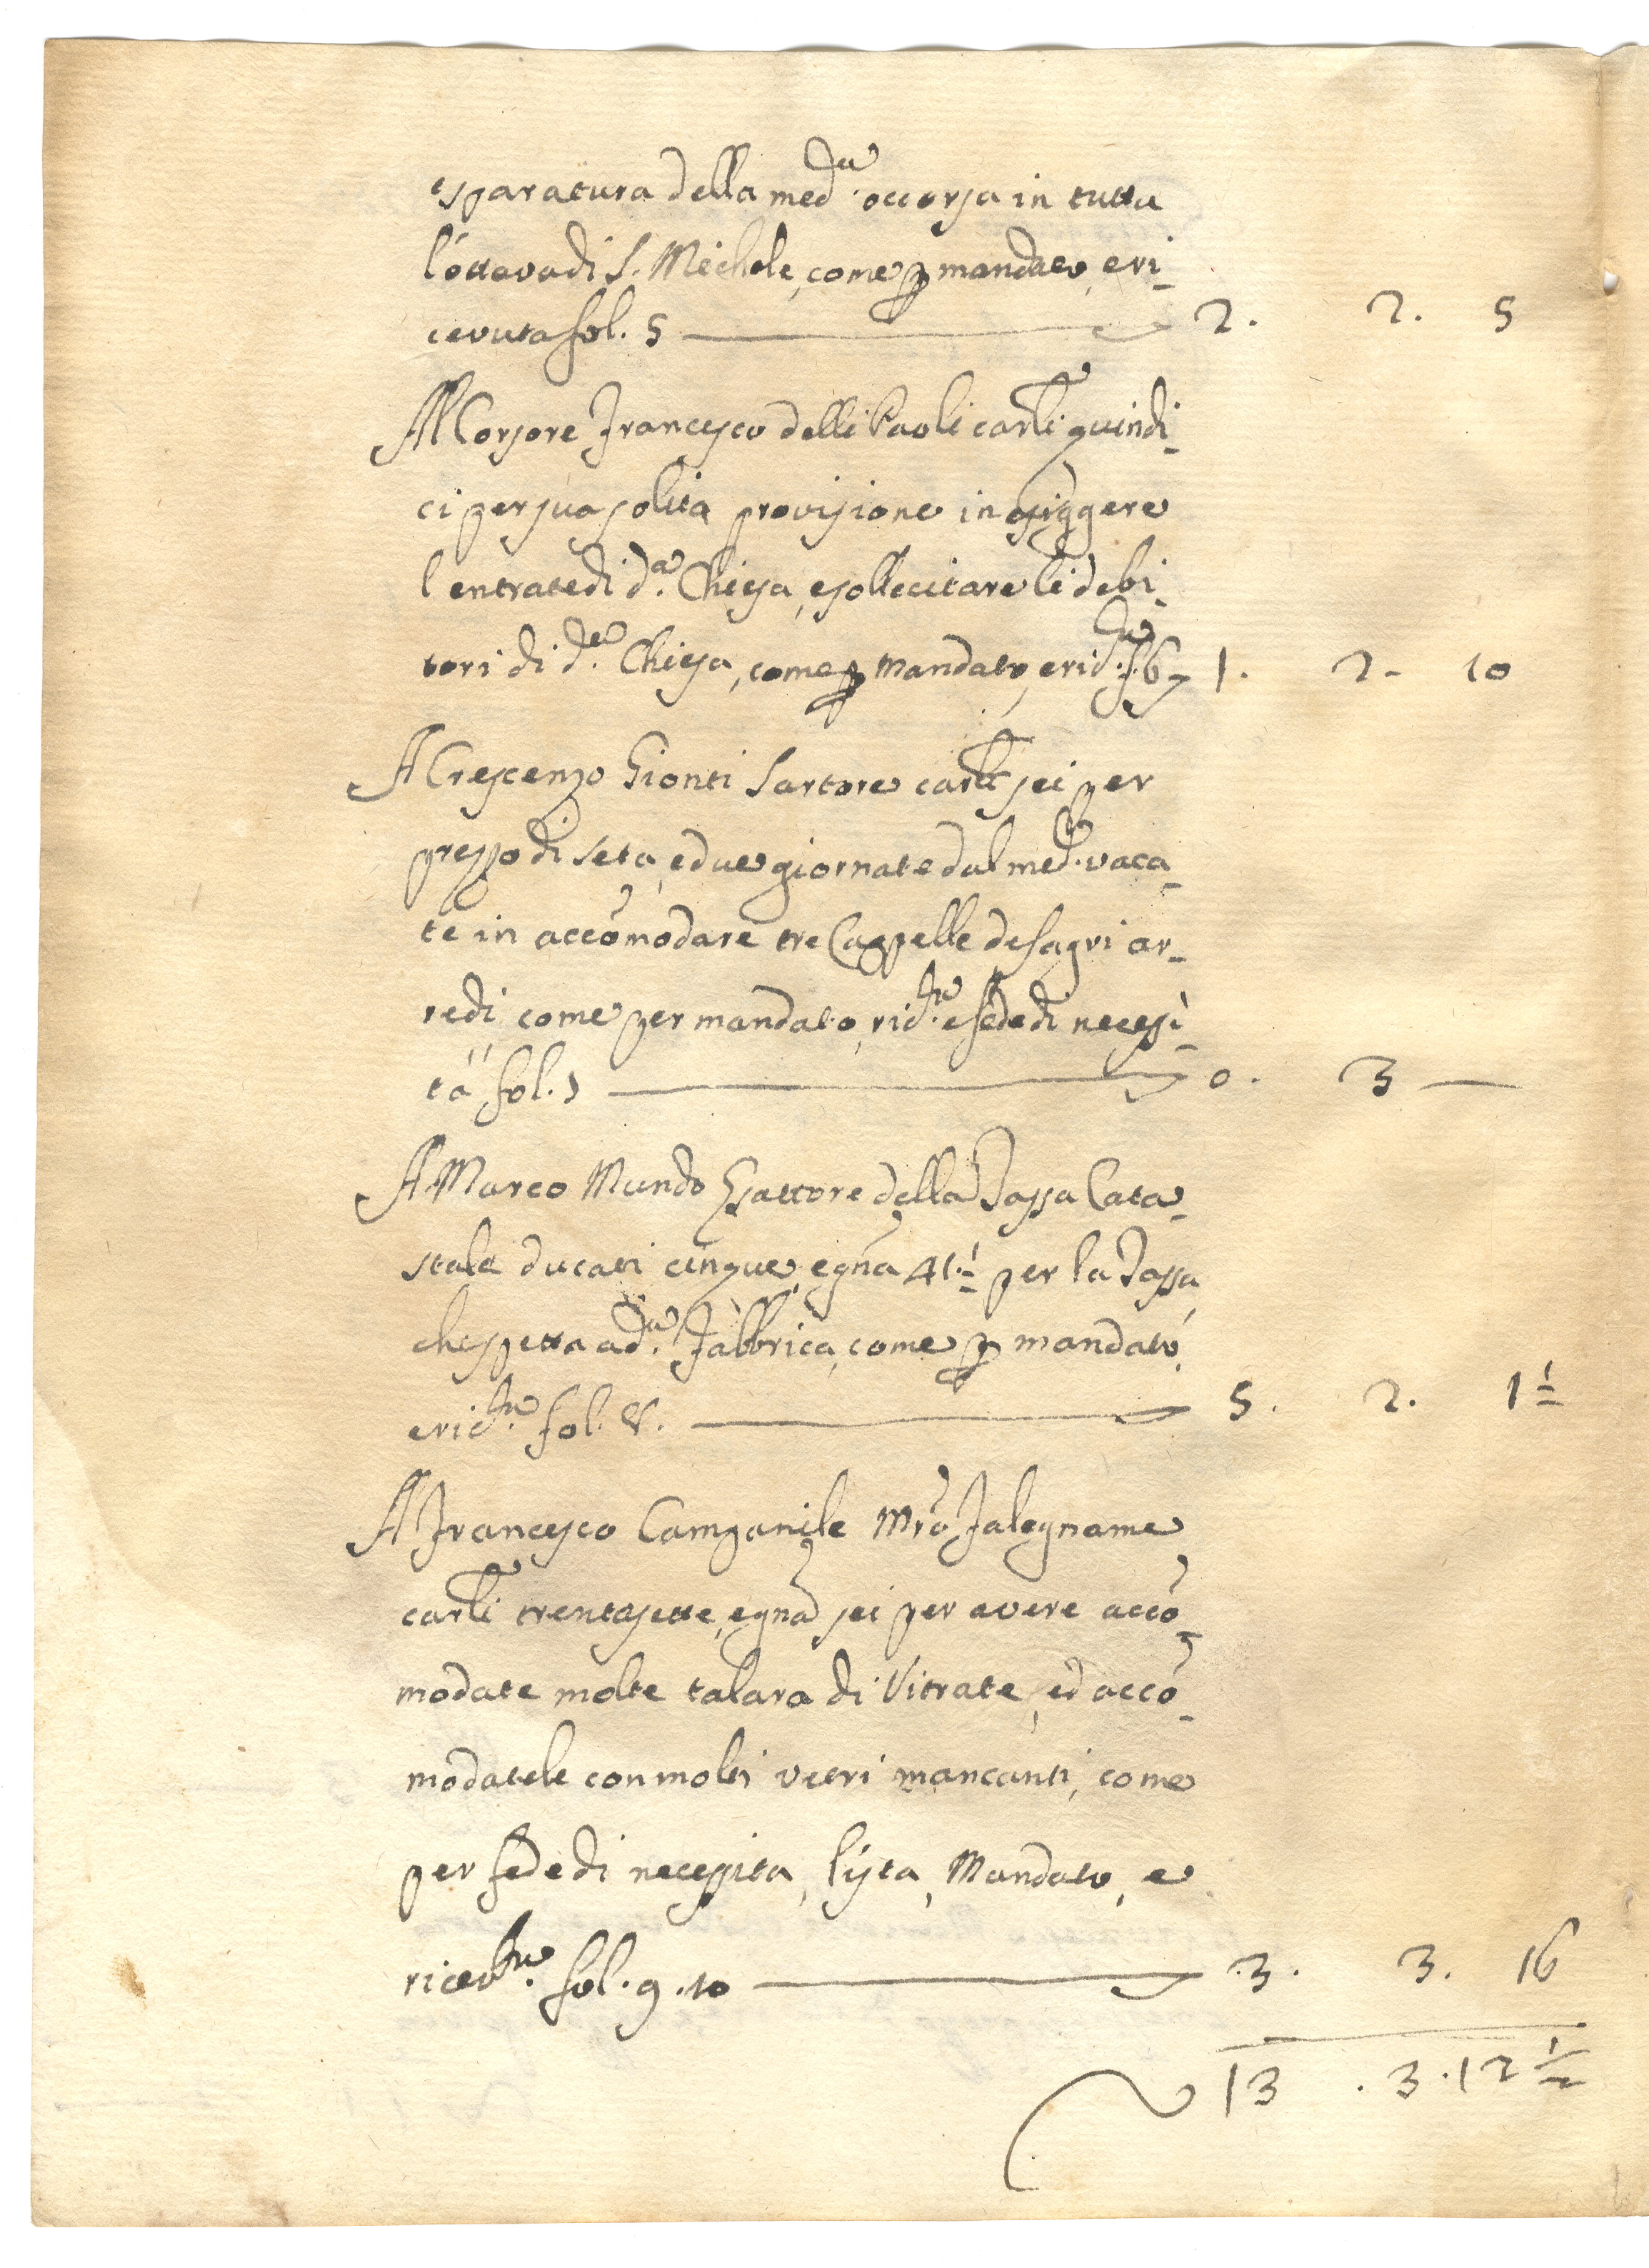 esparatura della med.ª occorsa in tutta
l'ottava di S. Michele, come p mandato, e ri-
cevuta fol. 5 2. 2. 5
Al Corsore Francesco delli Paoli carli quindi-
ci per sua solita provisione in esiggere
l entrate di d.ª Chiesa, e sollecitare li debi-
tori di d.ª Chiesa, come p mandato, e ric.ta f. 6 1. 2- 10
A Crescenzo Gionti Sartore carli sei per
prezzo di seta, e due giornate dal med.º vaca-
te in accomodare tre Cappelle de sagri ar-
redi come per mandato, ric.ta e fede di necessi-
tà fol. 7 0. 3 —
A Marco Mundo Esattore della Tassa Cata-
stale ducati cinque, e gna 41.½ per la Tassa
che spetta a d.ª Fabbrica, come p mandato
e ric.ta fol. 8. 5. 2. 1½
A Francesco Campanile Mro Falegname
carli trentasette, e gna sei per avere acco-
modate molte talara di Vitrate, ed acco-
modatele con molti vetri mancanti, come
per fede di necessità, lista, Mandato, e
ricev.ta fol. 9. 10 3. 3. 16
13 . 3 . 12 ½